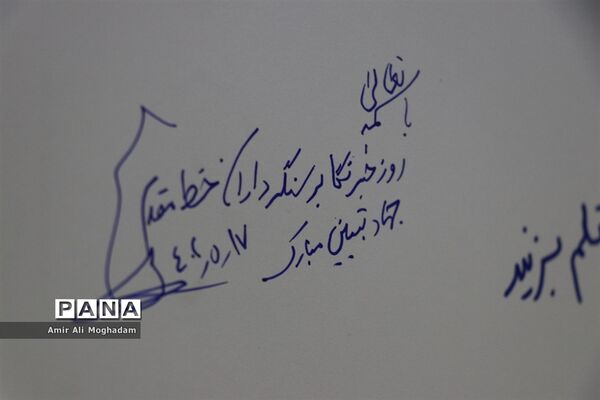 باسمه تعالی
روز خبرنگار بر سنگرداران خط مقدم
جهاد تبیین مبارک
قلم بزنید
PANA
Amir Ali Moghadam